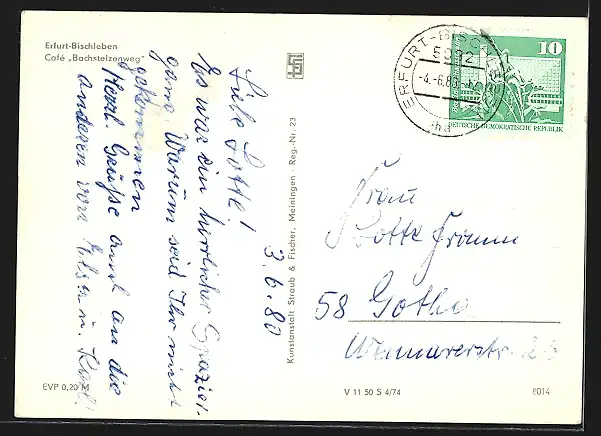 Erfurt-Bischleben
Café „Bachstelzenweg"
3.6.80
Liebe Lotte!
Es war ein herrlicher Spazier-
gang Warum seid Ihr nicht
gekommen
Herzl. Grüße auch an die
anderen von Elsa u. Karl
EVP 0,20 M
Kunstanstalt Straub & Fischer, Meiningen · Reg.-Nr. 23
V 11 50 S 4/74
8014
ERFURT-BISCHLEBEN
5092
-4.-6.80
ha
10
DEUTSCHE DEMOKRATISCHE REPUBLIK
Frau
Lotte Fromm
58 Gotha
Weimarerstr.